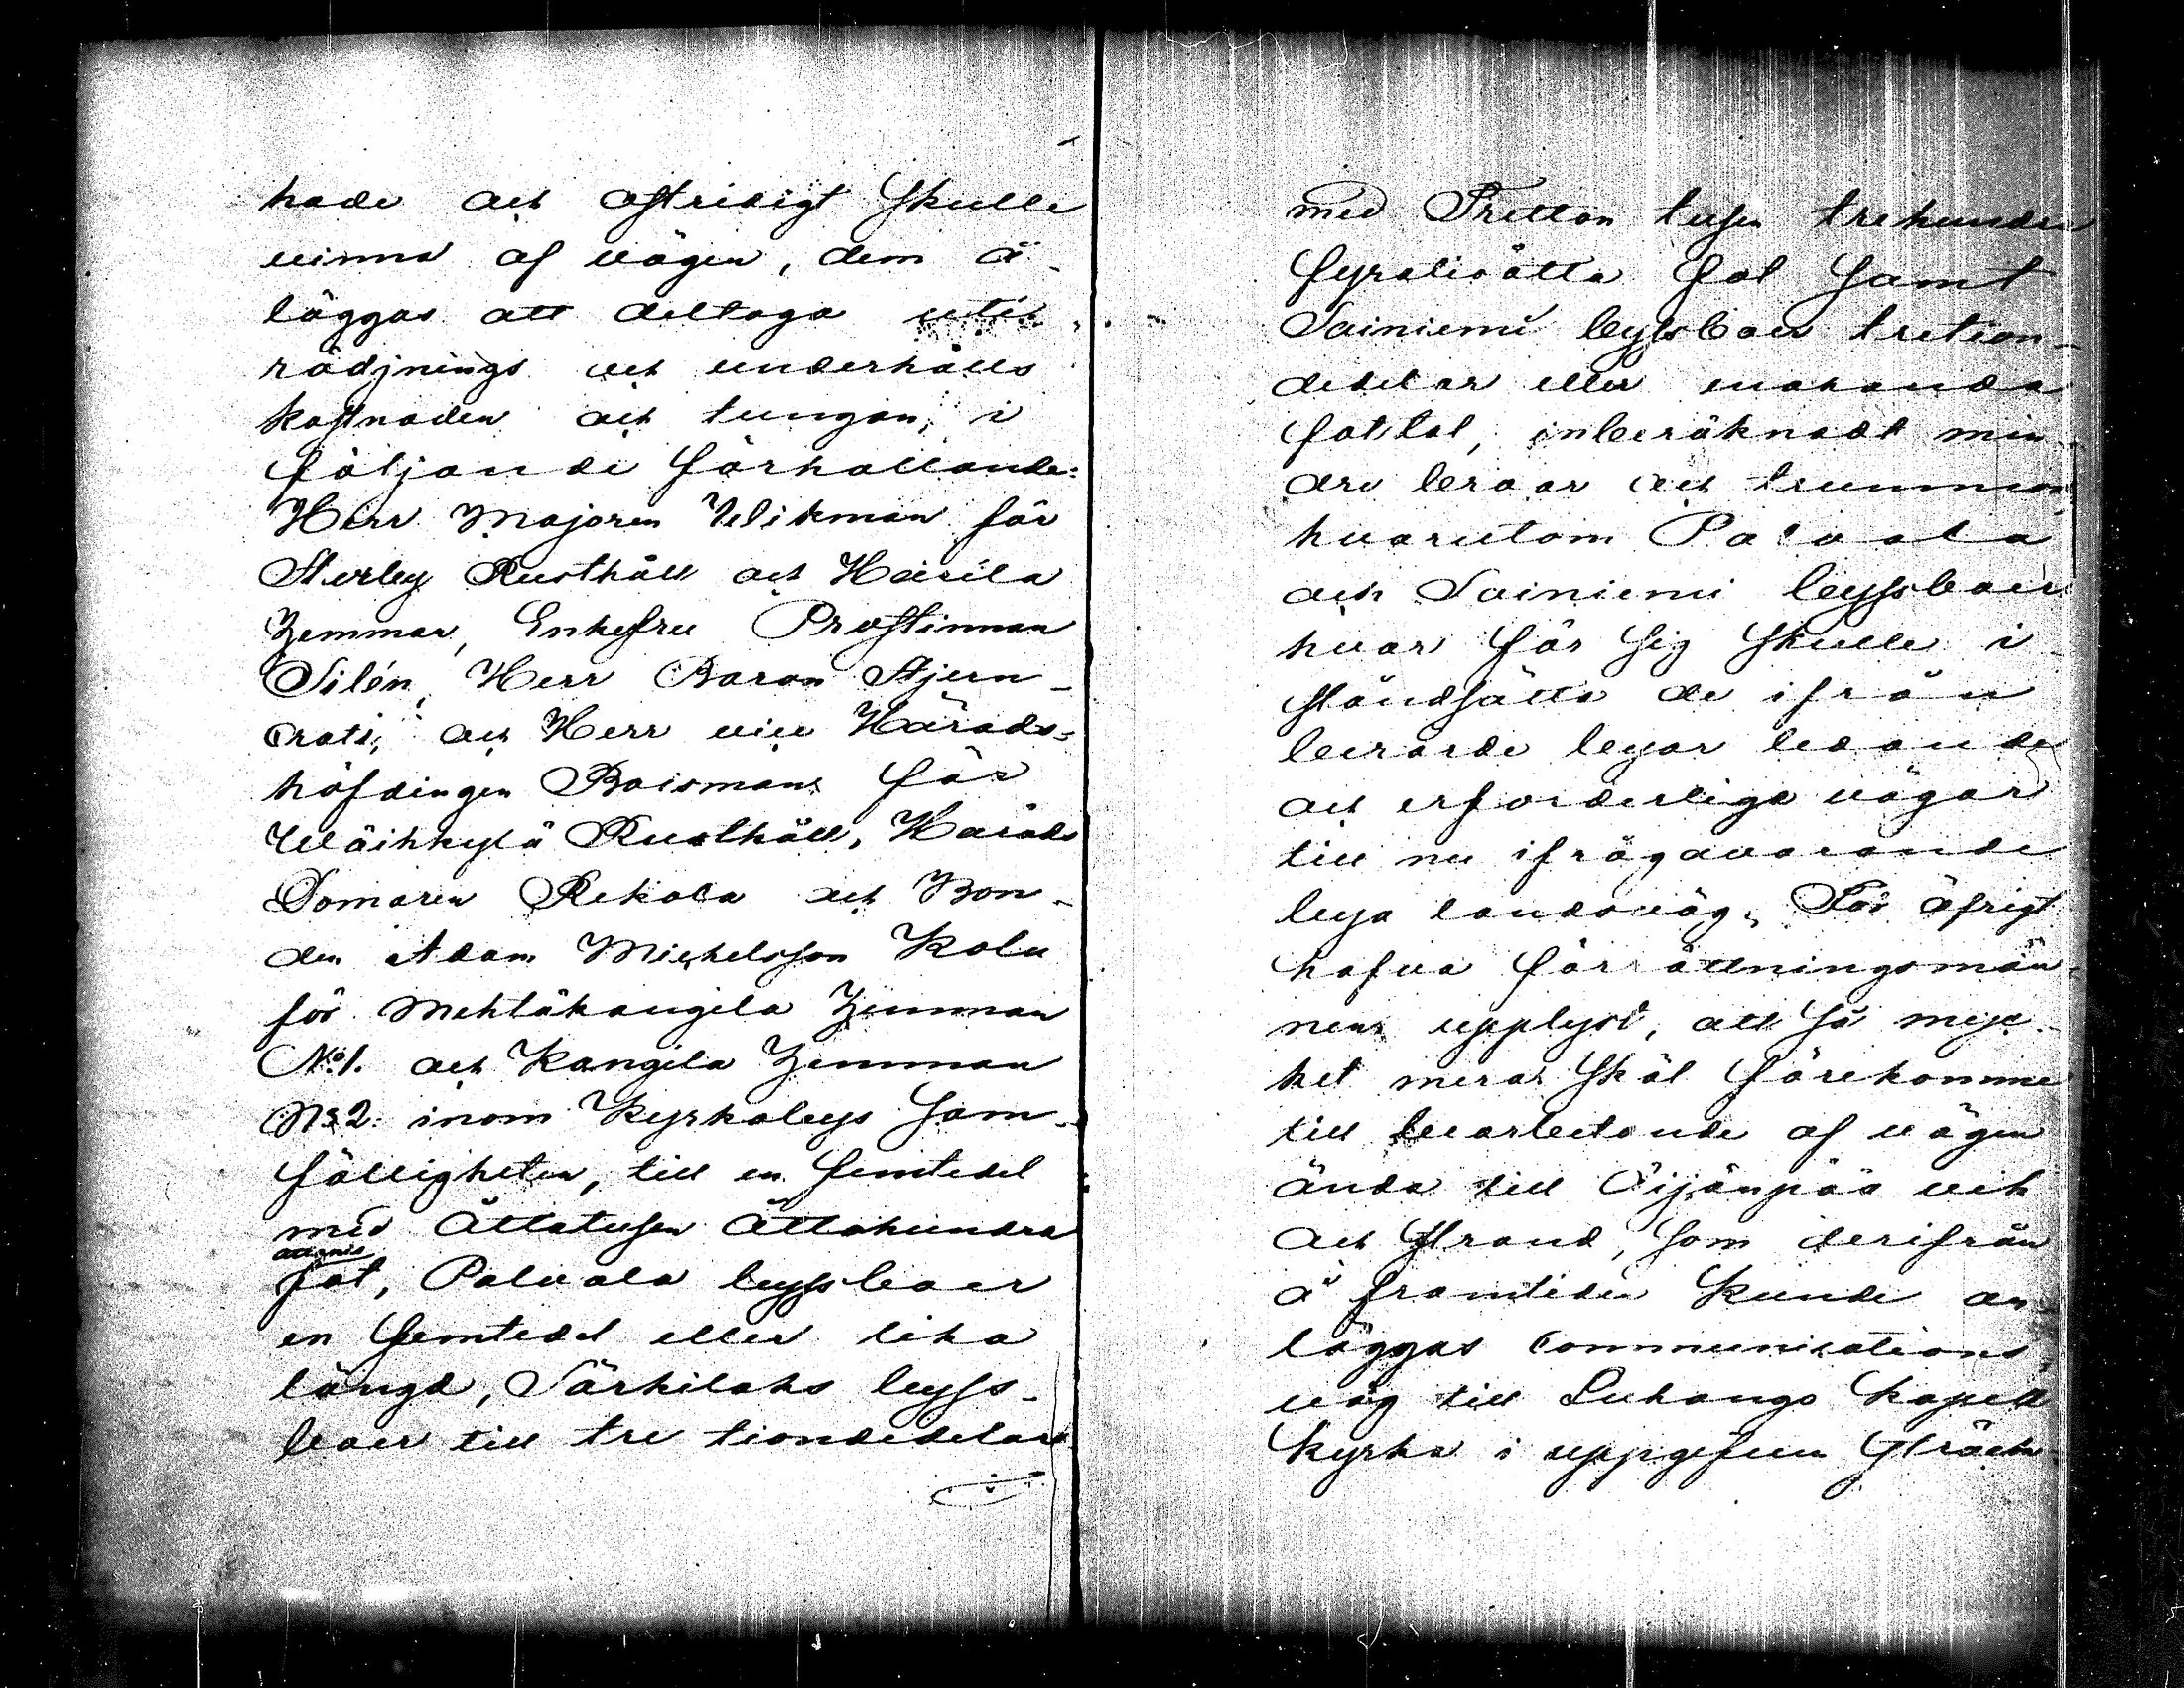 hade och ostridigt skulle
vinna af vägen, dem å-
läggas att deltaga uti
rödjnings och underhålls
kostnaden och tungan, i
följande förhållande:
Herr Majoren Wikman för
Sterley Rusthåll och Heisila
Hemman, Enkefru Prostinnan
Silén, Herr Baron Stjern-
crats, och Herr vice Härads-
höfdingen Boismans för
Wäihkylä Rusthåll, Härads
Domaren Rekola och Bon-
den Adam Michelsson Kolu
för Mehtäkangila Hemman
No 1. och Kangila Hemman
No 2. inom Kyrkobys Sam-
fälligheten, till en femtedel
med Åttatusen Åttahundra
attonio
fot, Palvala byssboer
en femtedel eller lika
längd, Särkilaks byss-
boer till tre tiondedelar
med Tretton tusen trehundra
fyratioåtta fot samt
Toiniemi bysboer tretion-
dedelar eller enahanda
fottal, inberäknadt min-
dre broar och trummor
hvarutom Palvala
och Toiniemi byssboer
hvar för sig skulle i
ståndsätta de ifrån
berörde byar ledande
och erforderliga vägar
till nu ifrågavarande
bya landsväg. För öfrigt
hafva förrättningsmän-
nen upplyst, att så myc-
ket merar skäl förekomme
till bearbetande af vägen
ända till Äijänpää vik
och strand, som derifrån
å framtiden kunde an-
läggas communications
väg till Luhango Kapell
Kyrka i uppgifven sträck-